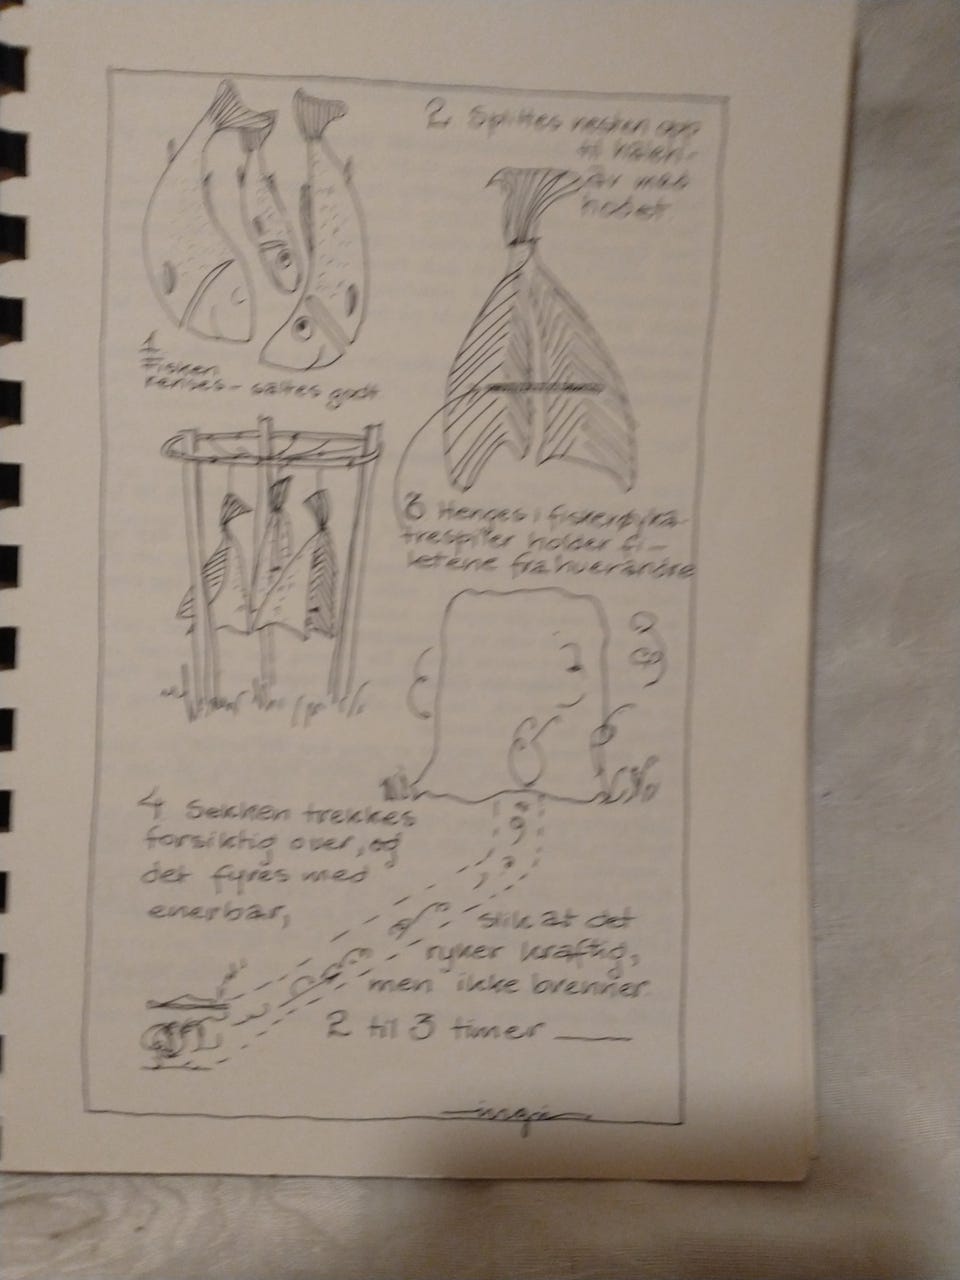 1
Fisken
renses - saltes godt
2 Splittes nesten opp
til halen -
av med
hodet
3 Henges i
trespiler holder fi-
letene fra hverandre
4 Sekken trekkes
forsiktig over, og
det fyres med
enerbar,
slik at det
ryker kraftig,
men ikke brenner
2 til 3 timer